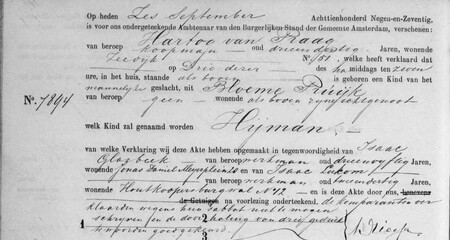 Op heden Zes September Achttienhonderd Negen-en-Zeventig,
is voor ons ondergeteekende Ambtenaar van den Burgerlijken Stand der Gemeente Amsterdam, verschenen:
Hartog van Praag
van beroep koopman oud drieendertig Jaren, wonende
Zeedijk No. 151, welke heeft verklaard dat
op Drie dezer des na middags ten zeven
ure, in het huis, staande als boven is geboren een Kind van het
mannelijke geslacht, uit Bloeme
No. 7894 van beroep geen wonende als boven zijne echtgenoot
welk Kind zal genaamd worden Hijman
van welke Verklaring wij deze Akte hebben opgemaakt in tegenwoordigheid van Isaac
van beroep werkman oud Jaren,
wonende Jonas Daniel Meijerplein en van Isaac
van beroep werkman oud Jaren,
wonende Houtkoopersburgwal No 42 en is deze Akte door ons, benevens
de Getuigen na voorlezing onderteekend. de komparanten ver
klaarden wegens hun sabbat niet te mogen
schrijven de door haling van drie gedrukte
woorden goedgekeurd.
1
2
3